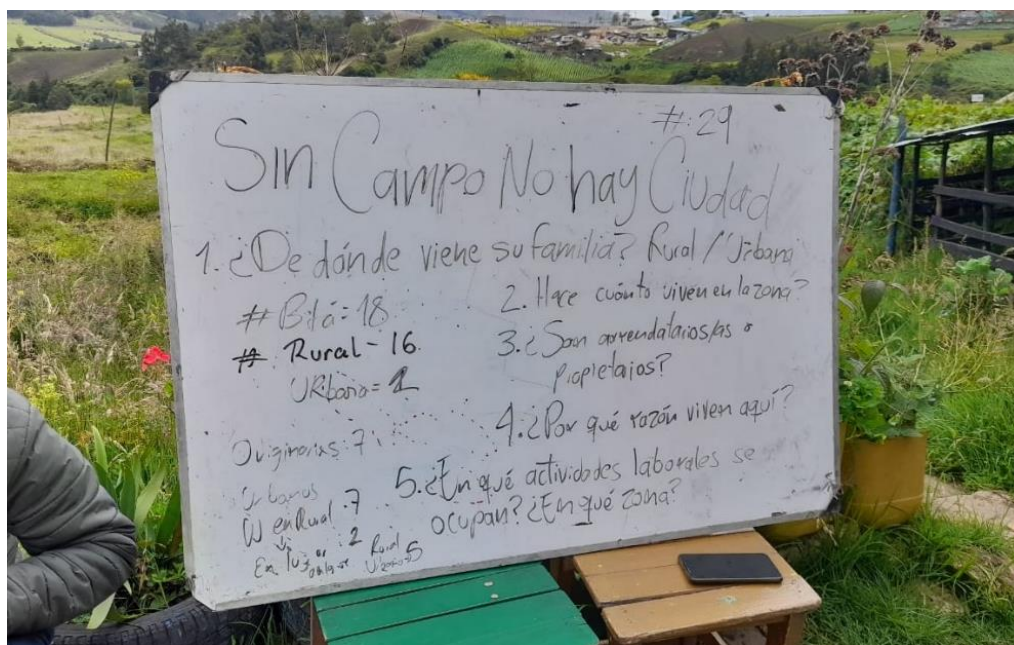 #: 29
Sin Campo No hay Ciudad
1. ¿De dónde viene su familia? Rural / Urbana
# Btá = 18
# Rural - 16
URbano = 1
Originarias: 7
Urbanos
en Rural . 7
: 2
Rural
Urbano 5
2. Hace cuánto viven en la zona?
3. ¿Son arrendatarios/as o
propietarios?
4. ¿Por qué razón viven aquí?
5. ¿En qué actividades laborales se
ocupan? ¿En qué zona?